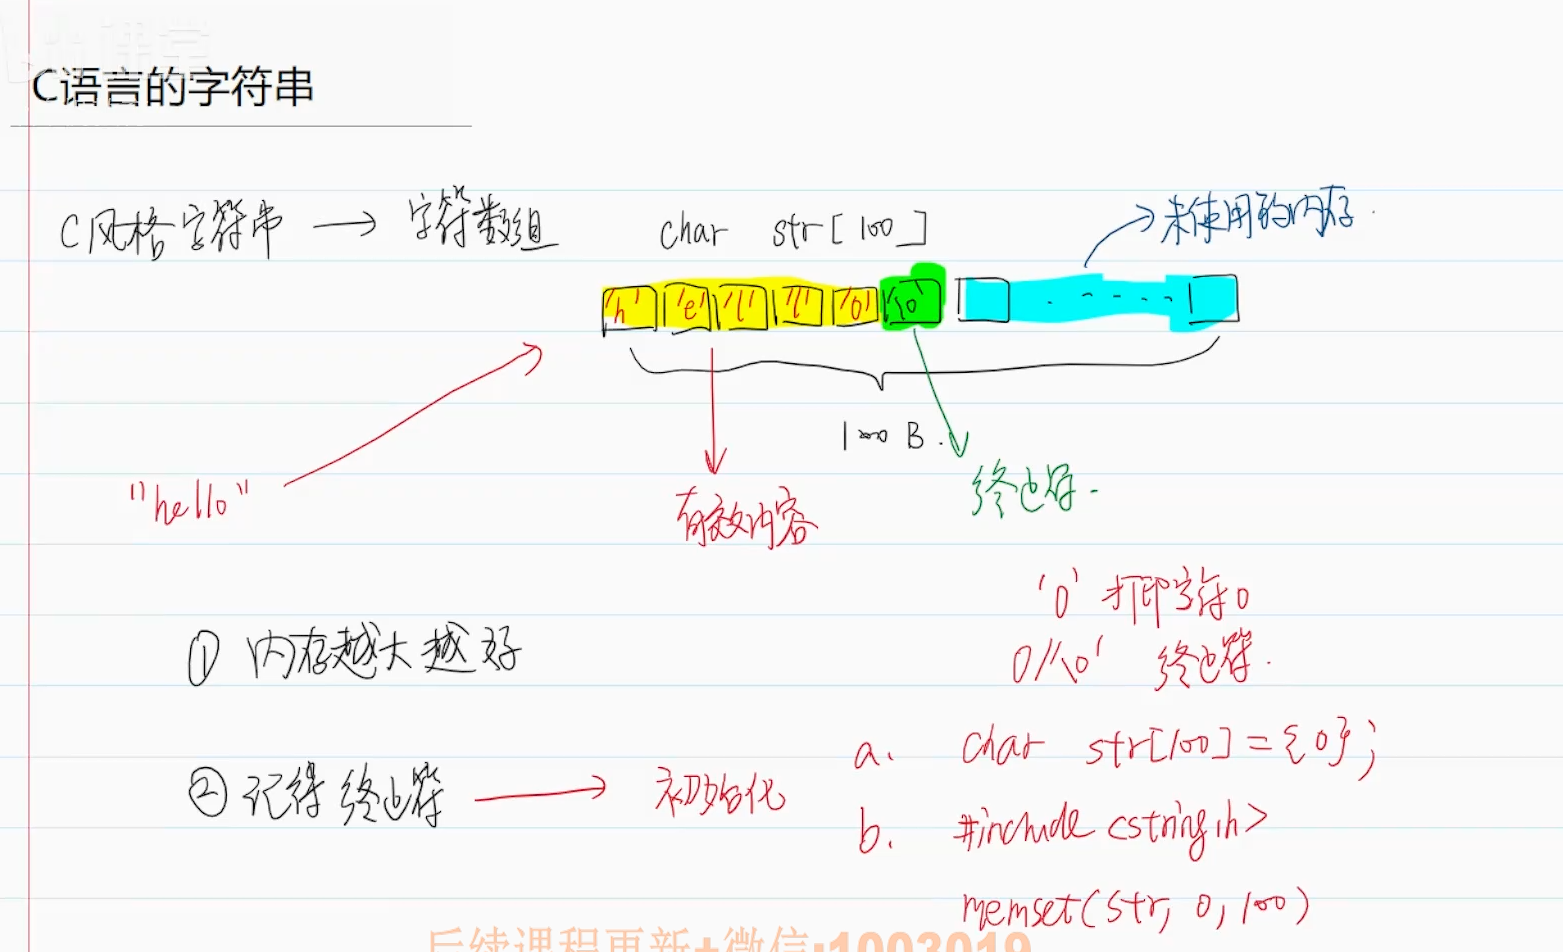 课堂
C语言的字符串
C风格字符串 → 字符数组 char str[100] → 未使用的内存.
'h' 'e' 'l' 'l' 'o' '\0' . - - - - -
100 B.
"hello" 有效内容 终止符.
'0' 打印字符0
① 内存越大越好 0//\0' 终止符.
② 记得终止符 → 初始化
a. char str[100] = {0};
b. #include <string.h>
memset(str, 0, 100)
后续课程更新+微信:1003019